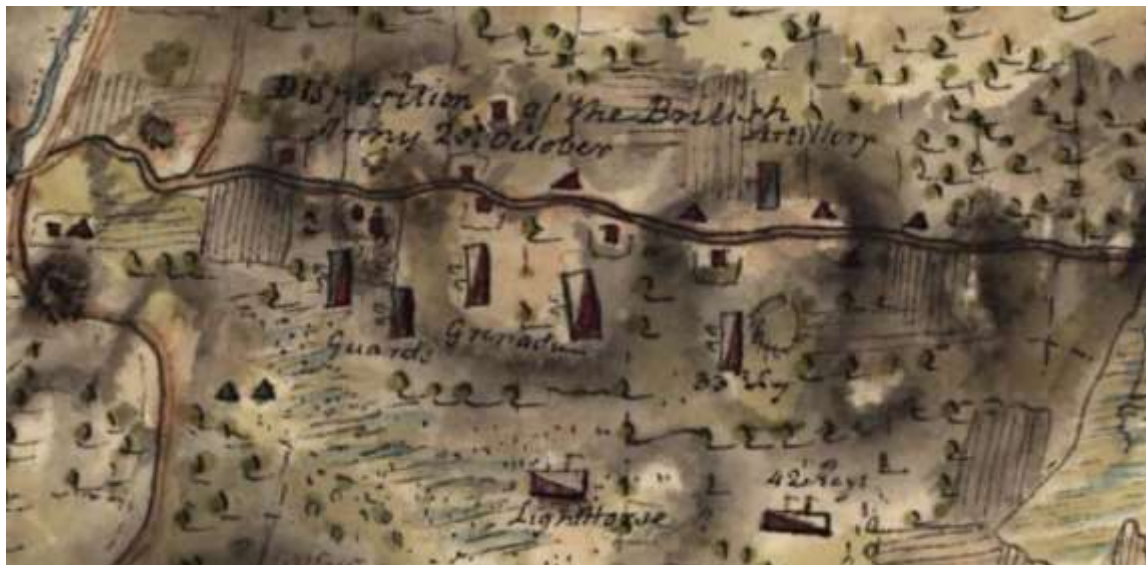 Disposition of the British
Army 20th October
Artillery
Guards
Grenadrs
33 Reg
Light Horse
42 Regt